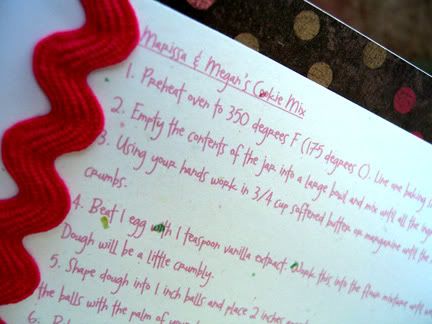 Marissa & Megan's Cookie Mix
1. Preheat oven to 350 degrees F (175 degrees C). Line one baking
2. Empty the contents of the jar into a large bowl and mix until all the
3. Using your hands work in 3/4 cup softened butter or margarine until the
crumbs.
4. Beat 1 egg with 1 teaspoon vanilla extract. Work this into the flour mixture until
Dough will be a little crumbly.
5. Shape dough into 1 inch balls and place 2 inches
the balls with the palm of your
6.